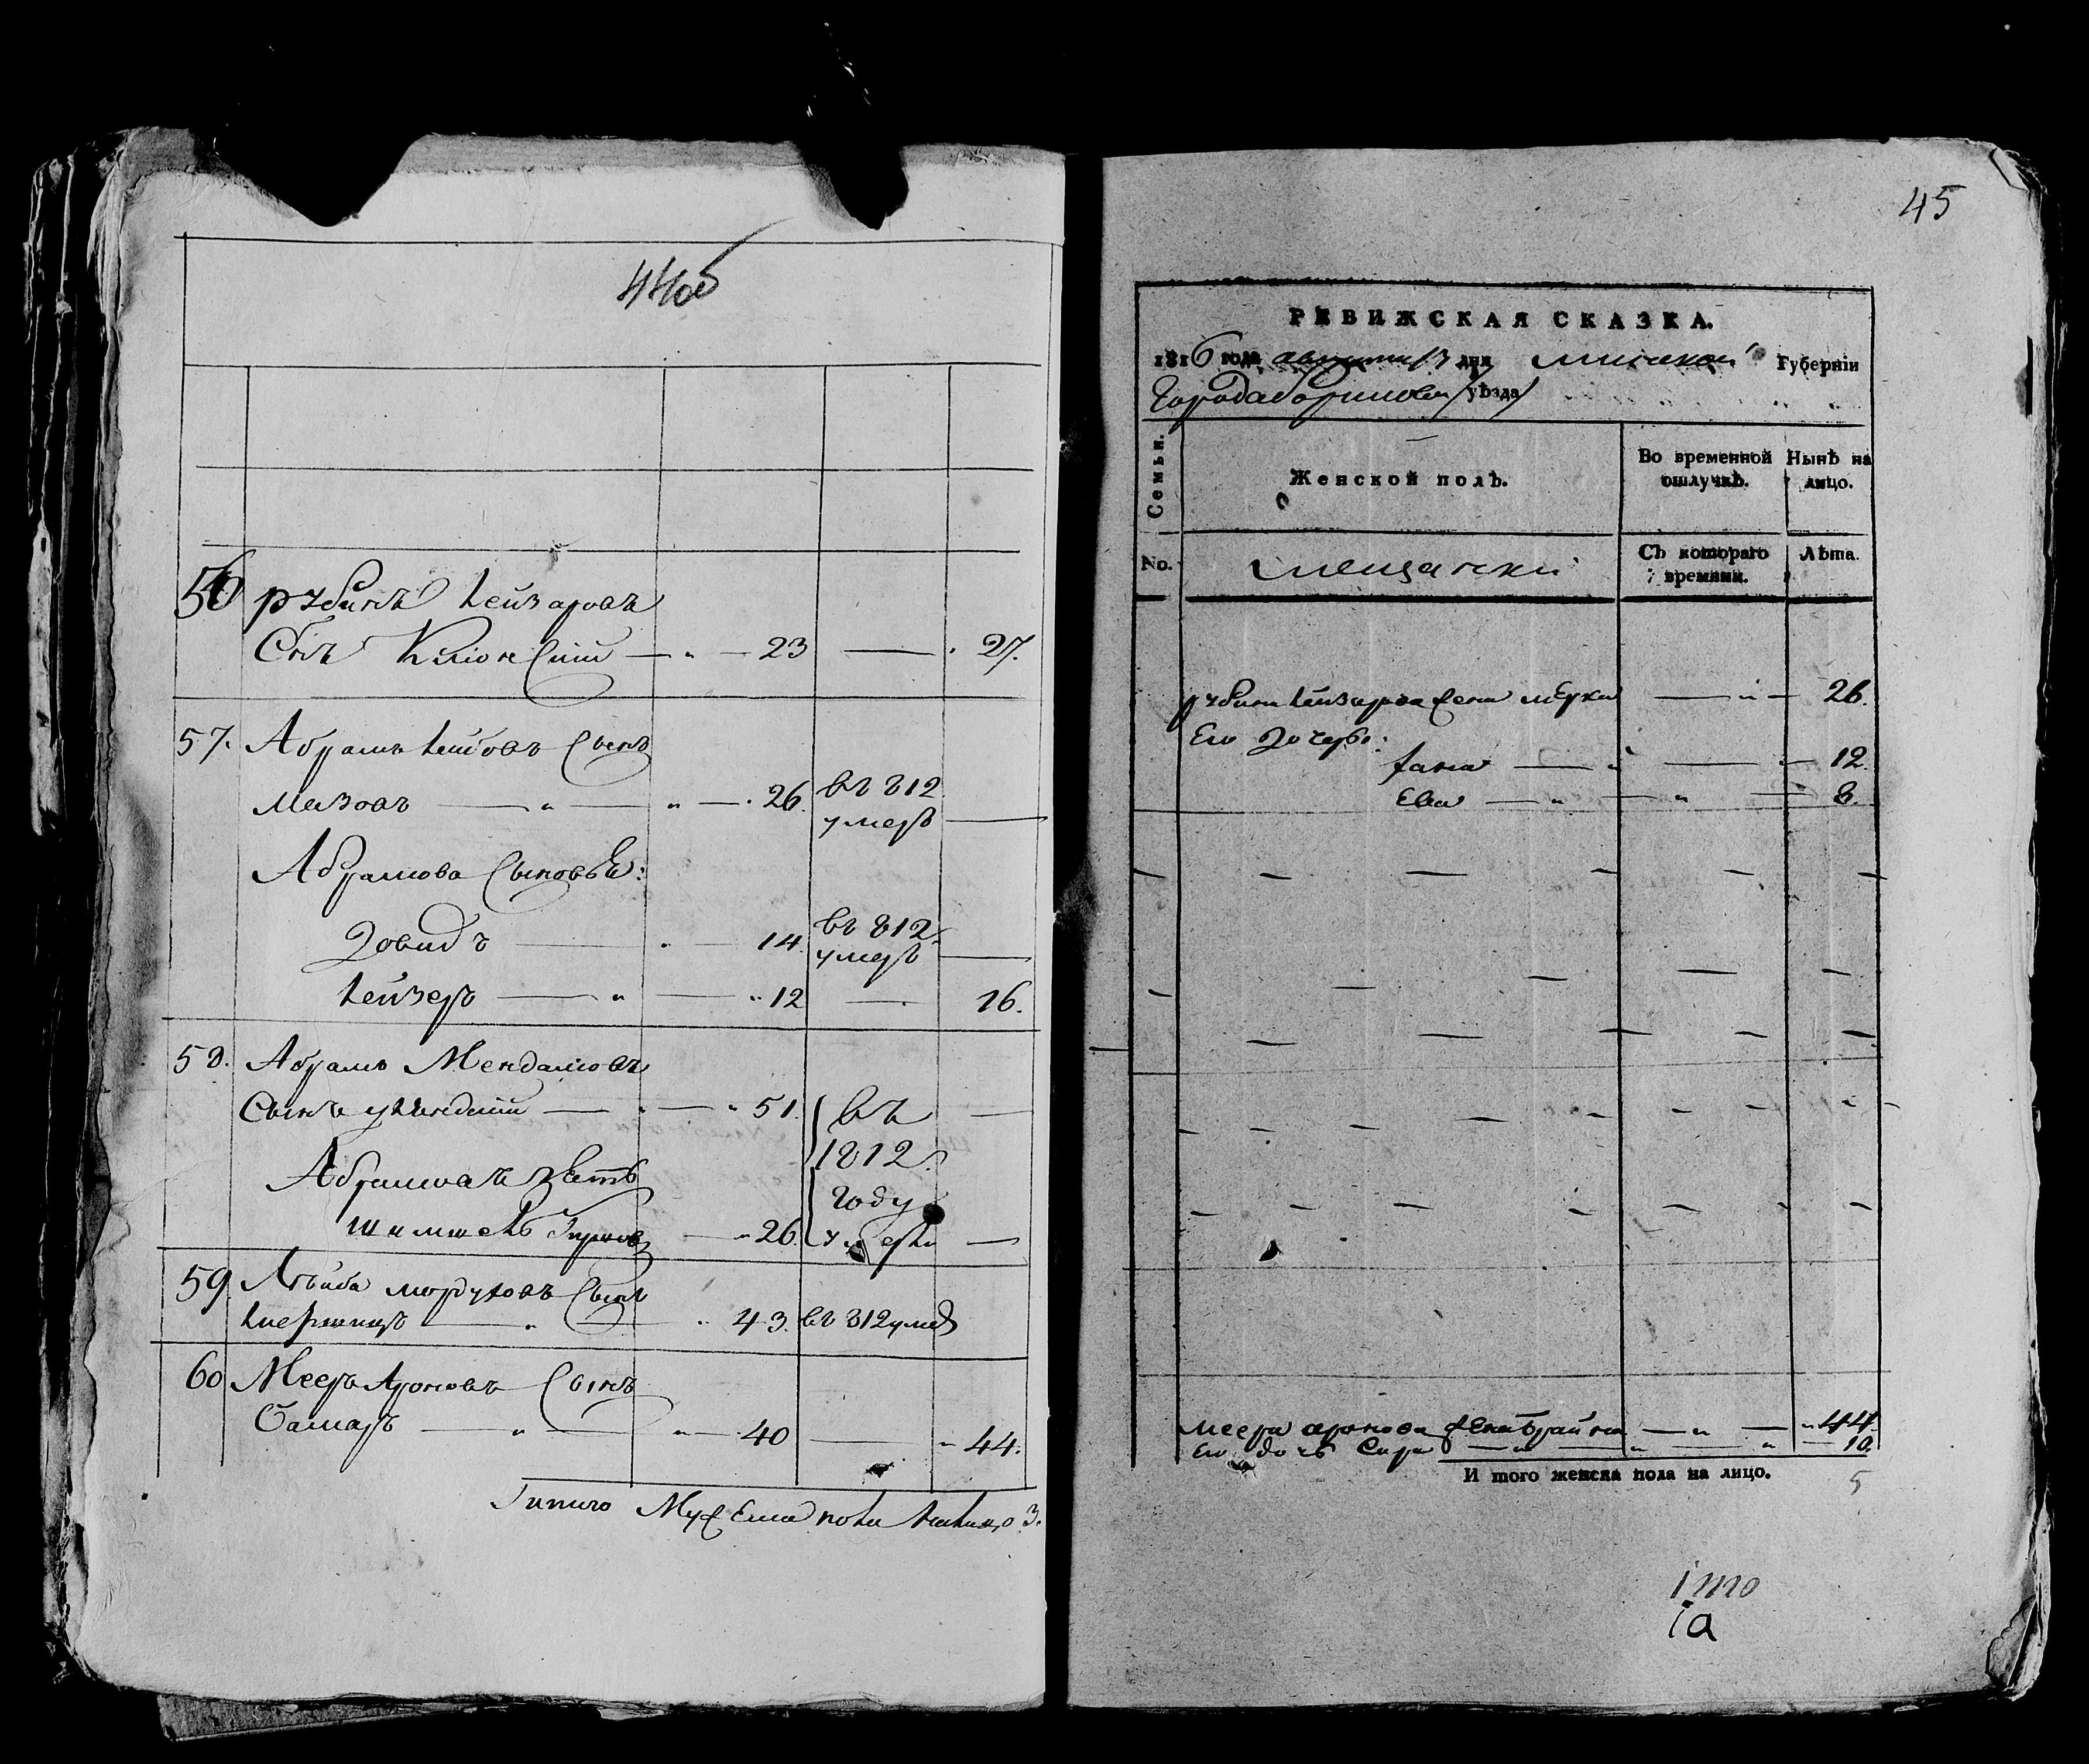 44об
56 рубинъ Лейзаровъ
Снъ Клионский — „ — 23 — 27.
57. Абрамъ Лейбовъ Сынъ
Мазовъ — „ — „ — 26. въ 812
умеръ —
Абрамова Сыновье:
Довидъ — „ — 14. въ 812
умеръ —
Лейзеръ — „ — „ 12 — 16.
58. Абрамъ Мендалиовъ
Сынъ — „ — „ 51. въ —
1812
Абрамовъ зеть
году
шимшель — „ 26. умерли —
59 Лейба мордуховъ Сынъ
— „ — „ 43. въ 812 умеръ
60 Мееръ Ароновъ Сынъ
Самаръ — „ — „ — 40 — „ 44.
Итого Мужеска пола налицо 3.
45
РЕВИЖСКАЯ СКАЗКА.
1816 года августа 13 дня минской Губернiи
Города борисова уѣзда
Семьи. Женской полъ. Во временной отлучкѣ. Нынѣ на лицо.
No. мещанки Съ котораго времяни. Лѣта.
рубина Лейзарова жена мерка — „ — 26.
Его дочерьи:
хана — „ — „ — 12.
Ева — „ — „ — 8.
меера аронова жена брайна — „ — „ 44
Его дочь Сира — „ — „ — „ — 10.
И того женска пола на лицо. 5